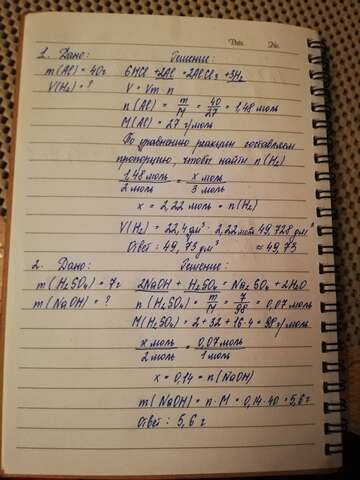 Date No.
1. Дано: Решение:
m(Al) = 40г 6HCl + 2Al = 2AlCl₃ + 3H₂
V(H₂) = ? V = Vm · n
n(Al) = m/M = 40/27 = 1,48 моль
M(Al) = 27 г/моль
По уравнению реакции составляем
пропорцию, чтобы найти n(H₂)
1,48 моль/2 моль = x моль/3 моль
x = 2,22 моль = n(H₂)
V(H₂) = 22,4 дм³ · 2,22 моль = 49,728 дм³
Ответ: 49,73 дм³ ≈ 49,73
2. Дано: Решение:
m(H₂SO₄) = 7г 2NaOH + H₂SO₄ = Na₂SO₄ + 2H₂O
m(NaOH) = ? n(H₂SO₄) = m/M = 7/98 = 0,07 моль
M(H₂SO₄) = 2 + 32 + 16·4 = 98 г/моль
x моль/2 моль = 0,07 моль/1 моль
x = 0,14 = n(NaOH)
m(NaOH) = n · M = 0,14 · 40 = 5,6 г
Ответ: 5,6 г